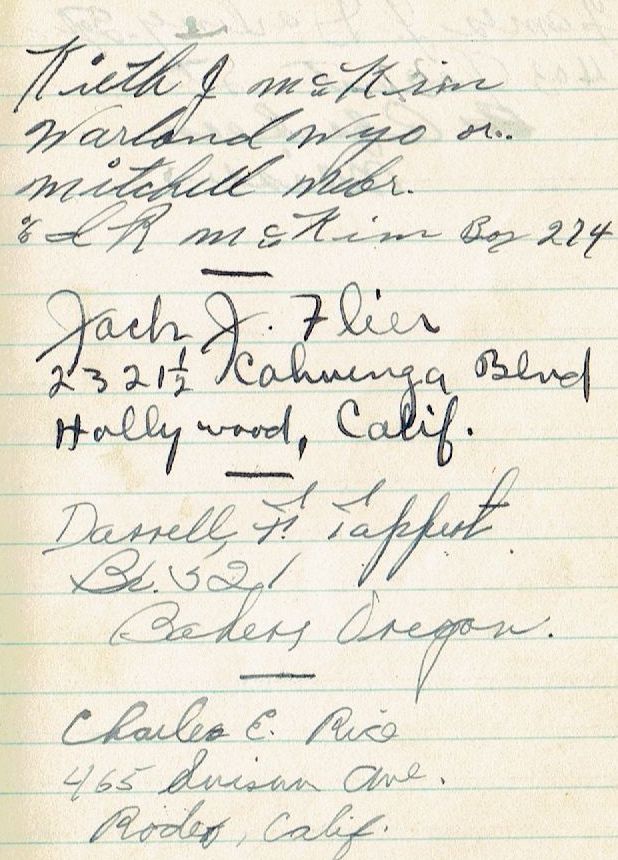 Kieth J McKim
Warland Wyo or..
Mitchell Nebr.
% I R McKim Box 274
Jack J. Flier
2321½ Cahuenga Blvd
Hollywood, Calif.
Darrell F. Tappert
Bx. 521
Bakers Oregon.
Charles E. Rice
465 Ave.
Rodeo, Calif.